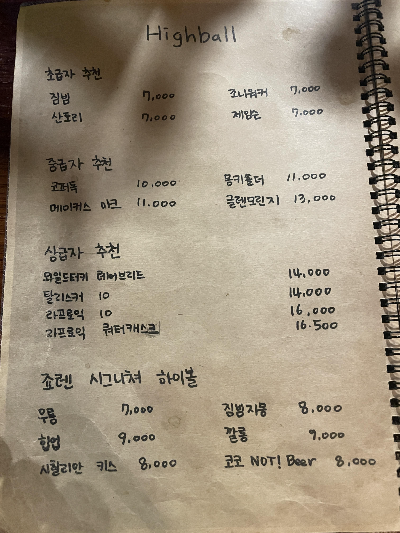 Highball
초급자 추천
짐빔 7,000 조니워커 7,000
산토리 7,000 제임슨 7.000
중급자 추천
코퍼독 10.000 몽키숄더 11.000
메이커스 마크 11.000 글렌모린지 13,000
상급자 추천
와일드터키 레어브리드 14,000
탈리스커 10 14,000
라프로익 10 16,000
라프로익 쿼터캐스크 16.500
죠렌 시그니쳐 하이볼
우롱 7,000 짐빔자몽 8,000
힙업 9,000 깔롱 9,000
시칠리안 키스 8,000 코코 NOT! Beer 8,000